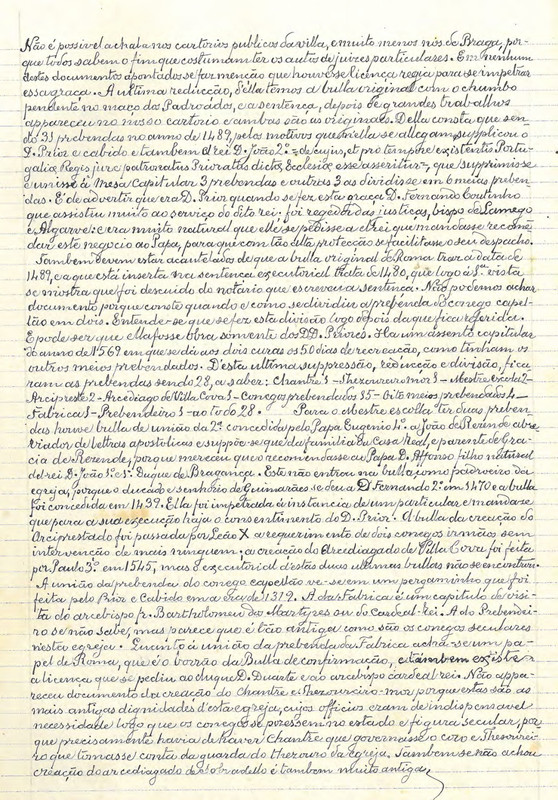 Não é possivel achal-a nos cartorios publicos da villa, e muito menos nos de Braga, por-
que todos sabem o fim que costumam ter os autos de juizes particulares. Em nenhum
destes documentos apontados se faz menção que houvesse licença regia para se impetrar
essa graça. A ultima reducção, della temos a bulla original com o chumbo
pendente no maço do Padroado, e a sentença, depois de grandes trabalhos
appareceu no nosso cartorio e ambas são as originaes. Della consta que sen-
do 35 prebendas no anno de 1489, pelos motivos que n'ella se allegam, supplicou o
D. Prior e cabido e tambem el rei D. João 2º = de cujus, et pro tempore existentis Portu-
galiæ Regis jure patronatus Prioratus dictæ Ecclesiæ esse asseritur =, que supprimisse
e unisse á Mesa Capitular 3 prebendas e outras 3 as dividisse em 6 meias preben-
das. É de advertir que era D. Prior quando se fez esta graça D. Fernando Coutinho
que assistiu muito ao serviço do dito rei: foi regedor das justiças, bispo de Lamego
e Algarve: era muito natural que elle se pedisse a el rei que mandasse recomen-
dar este negocio ao Papa, para que com tão alta protecção se facilitasse o seu despacho.
Tambem devem estar acautelados de que a bulla original de Roma traz a data de
1489, e a que está inserta na sentença executorial tracta de 1480, que logo á 1ª vista
se mostra que foi descuido do notario que escreveu a sentença. Não podemos achar
documento por que conste quando e como se dividiu a prebenda do conego capel-
lão em dois. Entende-se que se fez esta divisão logo depois da que fica referida.
E póde ser que ella fosse obra sómente dos DD. Priores. Ha um assento capitular
do anno de 1569 em que se dá aos dois curas os 50 dias de recreação, como tinham os
outros meios prebendados. D'esta ultima suppressão, reducção e divisão, fica-
ram as prebendas sendo 28, a saber: Chantre 1 - Thezoureiro mór 1 - Mestre Escola 2 -
Arcipreste 2 - Arcediago de Villa Cova 1 - Conegos prebendados 15 - Oito meios prebendados 4 -
Fabrica 1 - Prebendeiro 1 - ao todo 28. Para o Mestre escola ter duas preben-
das houve bulla de união da 2ª concedida pelo Papa Eugenio 4º a João de abre-
viador de lettras apostolicas e suppõe-se que da familia da Casa Real, e parente de Gra-
cia de Rezende, porque mereceu que o recomendasse ao Papa D. Affonso filho natural
del rei D. João 1º 1º Duque de Bragança. Este não entrou na bulla como padroeiro da
egreja, porque o ducado e senhorio de Guimarães se deu a D. Fernando 2º em 1470 e a bulla
foi concedida em 1439. Ella foi impetrada á instancia de um particular e manda-se
que para a sua execução haja o consentimento do D. Prior. A bulla da creação do
Arciprestado foi passada por Leão X a requerimento de dois conegos irmãos sem
intervenção de mais ninguem; a creação do Arcediagado de Villa Cova foi feita
por Paulo 3º em 1545, mas o executorial d'estas duas ultimas bullas não se encontrou.
A união da prebenda do conego capellão ve-se em um pergaminho que foi
feita pelo Prior e Cabido em a Era de 1312. A da Fabrica é um capitulo de visi-
ta do arcebispo fr. Bartholomeu dos Martyres ou do Cardeal-Rei. A do Prebendei-
ro se não sabe, mas parece que é tão antiga como são os conegos seculares
nesta egreja. Quanto á união da prebenda da Fabrica acha-se um pa-
pel de Roma, que é o borrão da Bulla de confirmação, e tambem existe
a licença que se pediu ao duque D. Duarte e ao arcebispo cardeal rei. Não appa-
receu documento da creação do Chantre e Thezoureiro-mór porque estas são as
mais antigas dignidades d'esta egreja, cujos officios eram de indispensavel
necessidade logo que os conegos se pozessem no estado e figura secular, por-
que precisamente havia de haver Chantre que governasse o coro e Thesourei-
ro que tomasse conta da guarda do thezouro da egreja. Tambem se não achou
creação do arcediagado de Sobradello é tambem muito antiga.